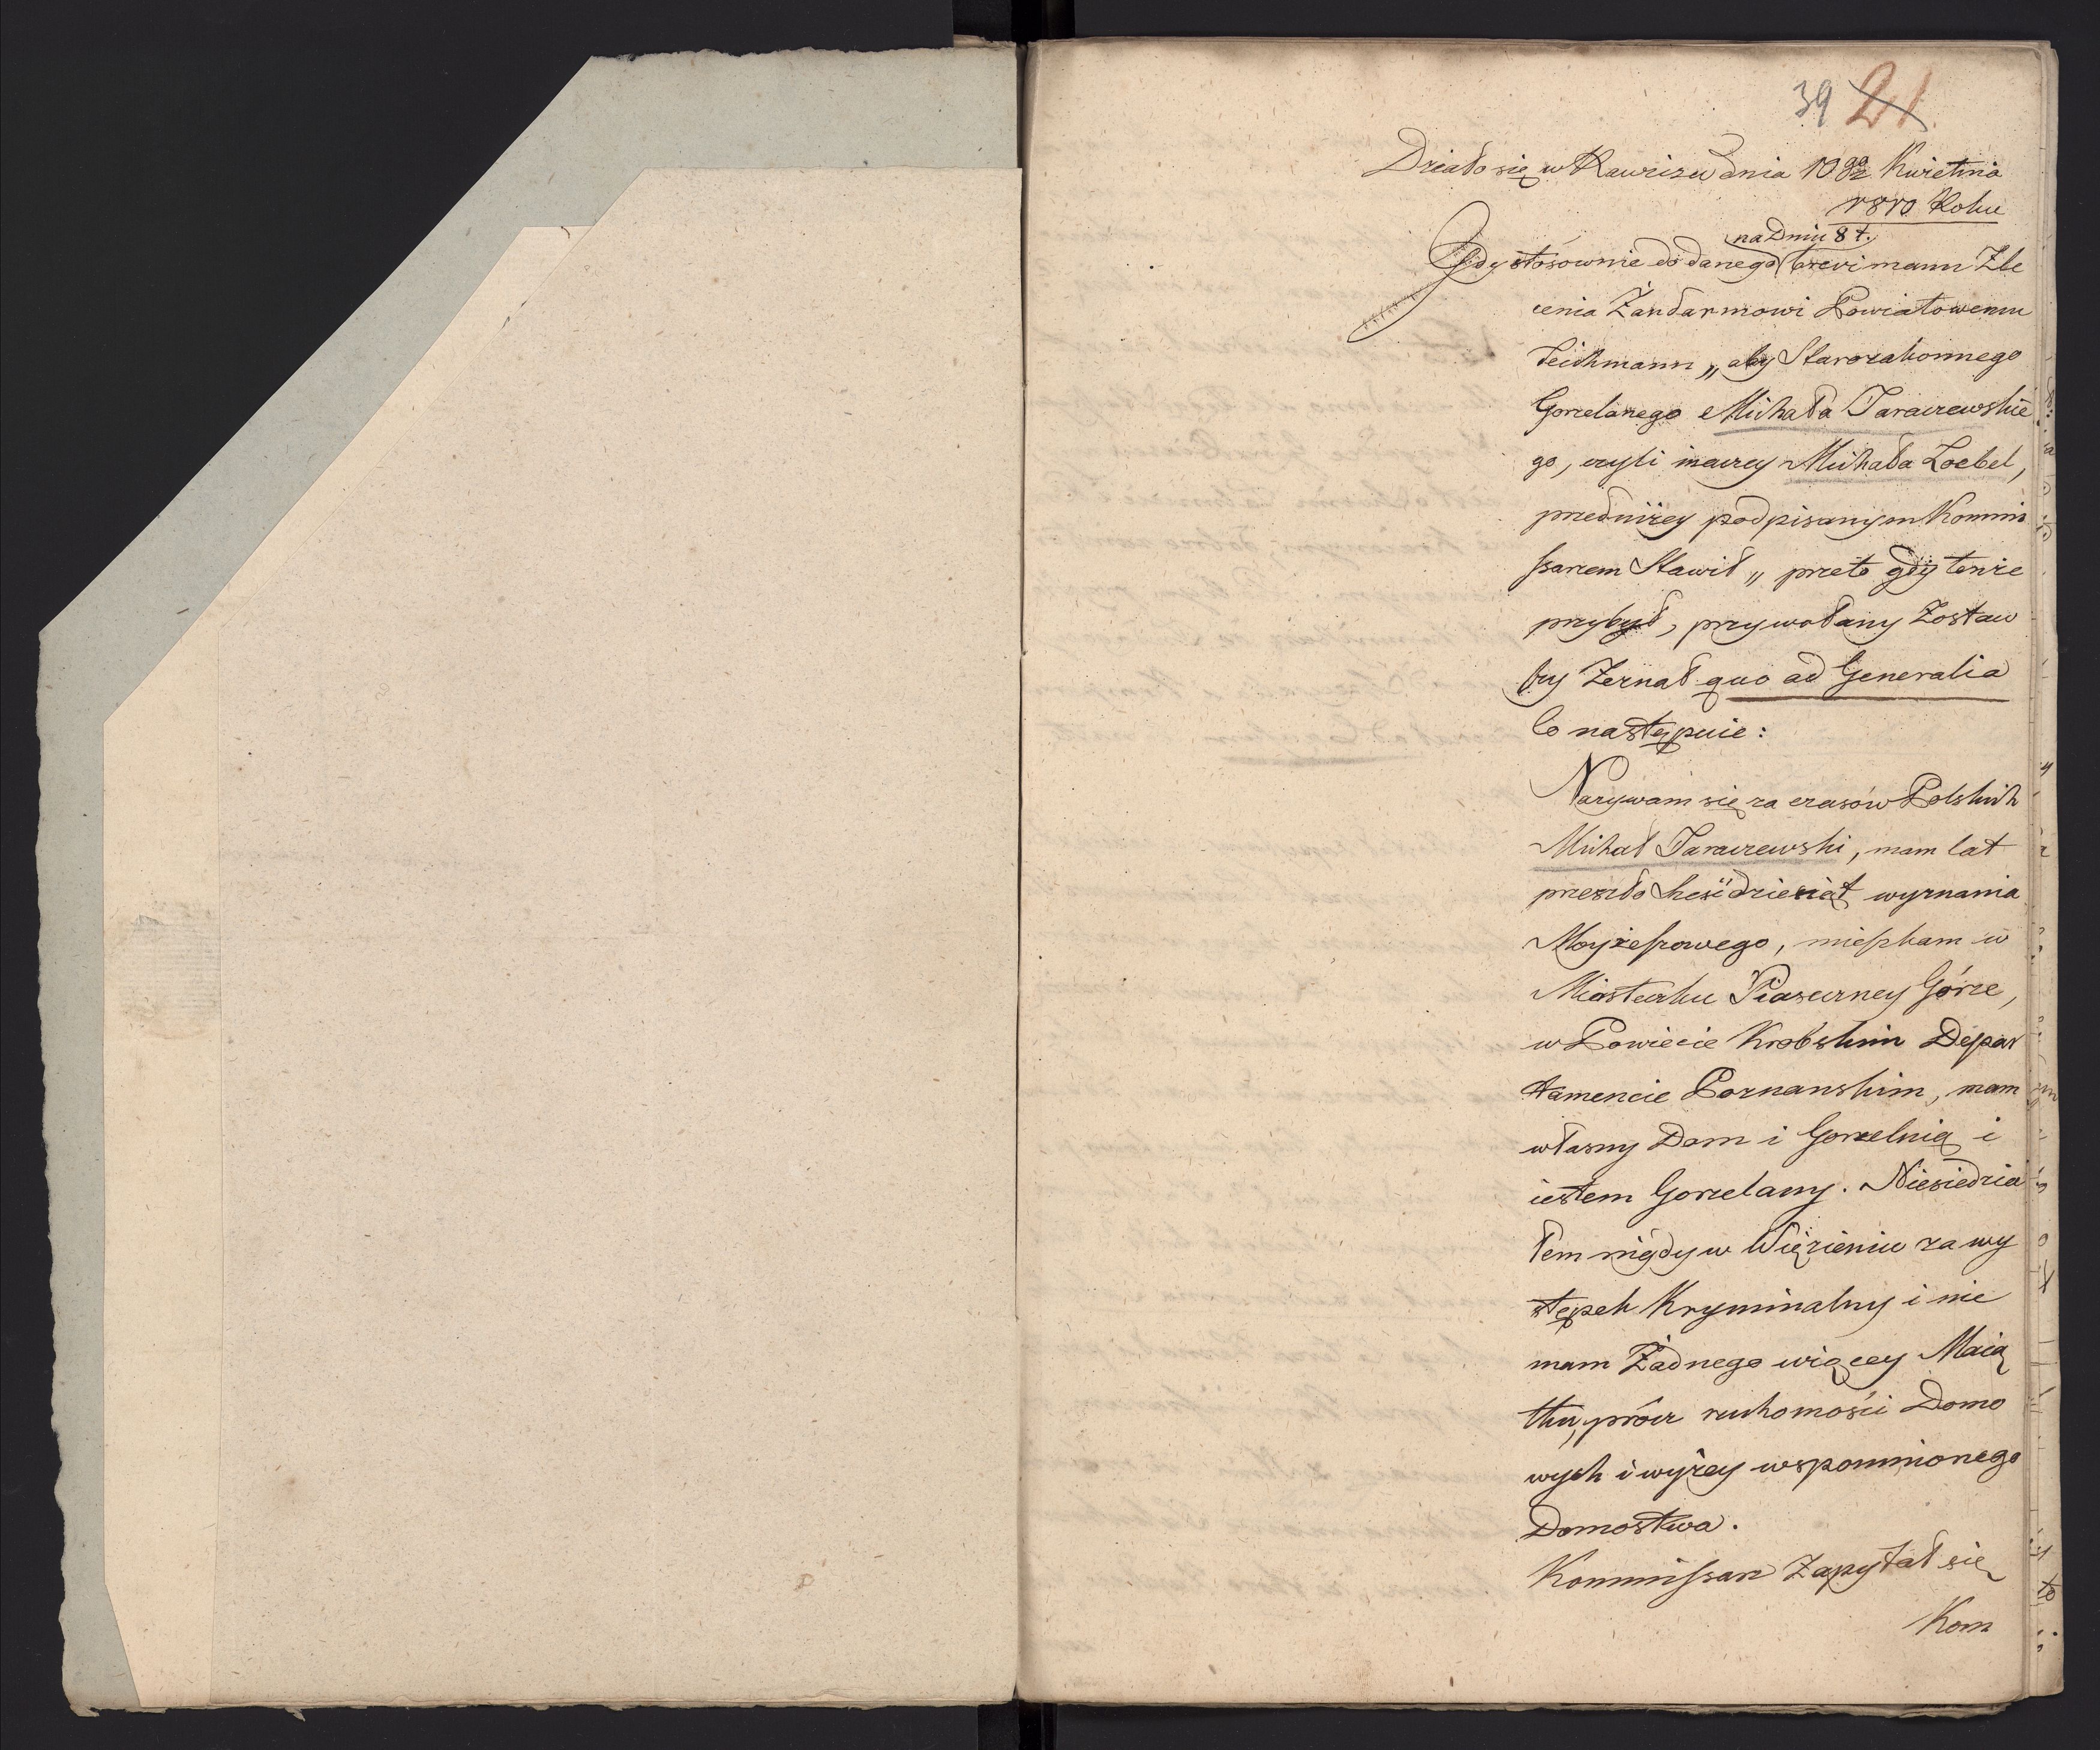 39 21.
Działo się w Rawiczu dnia 10go Kwietnia
1810 Roku
na Dniu 8 t.
Gdy stósownie do danego brevi manu Zle
cenia Żandarmowi Powiatowemu
Teichmann „ aby Starozakonnego
Gorzelanego Michała Taraczewskie
go, czyli inaczey Michała Loebel,
przed niżey podpisanym Kommis
sarzem Stawił „ przeto gdy tenże
przybył, przywołany Zostaw
szy Zeznał quo ad Generalia
Co następuie:
Nazywam się za czasów Polskich
Michał Taraczewski, mam lat
przeszło sześćdziesiąt wyznania
Moyżeszowego, mieszkam w
Miasteczku Piaseczney Górze,
w Powiecie Krobskim Depar
tamencie Poznanskim, mam
własny Dom i Gorzelnią i
iestem Gorzelany. Niesiedzia
łem nigdy w Więzieniu za wy
stępek Kryminalny i nie
mam Żadnego więcey Maią
tku, prócz ruchomości Domo
wych i wyżey wspomnionego
Domostwa.
Kommissarz Zapytał się
Kom